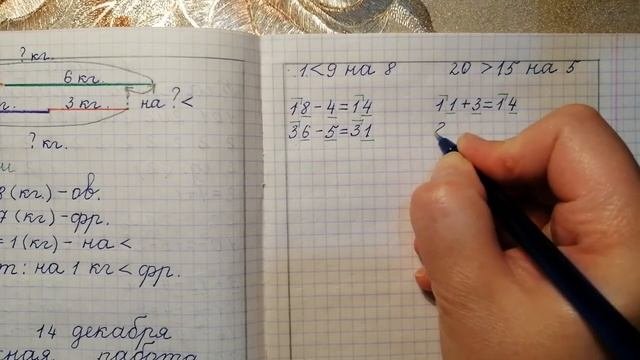 ? кг.
6 кг.
3 кг. на ?<
? кг.
8 (кг.) - ов.
7 (кг) - фр.
= 1 (кг) - на <
т: на 1 кг < фр.
14 декабря
работа
1 < 9 на 8 20 > 15 на 5
18 - 4 = 14 11 + 3 = 14
36 - 5 = 31